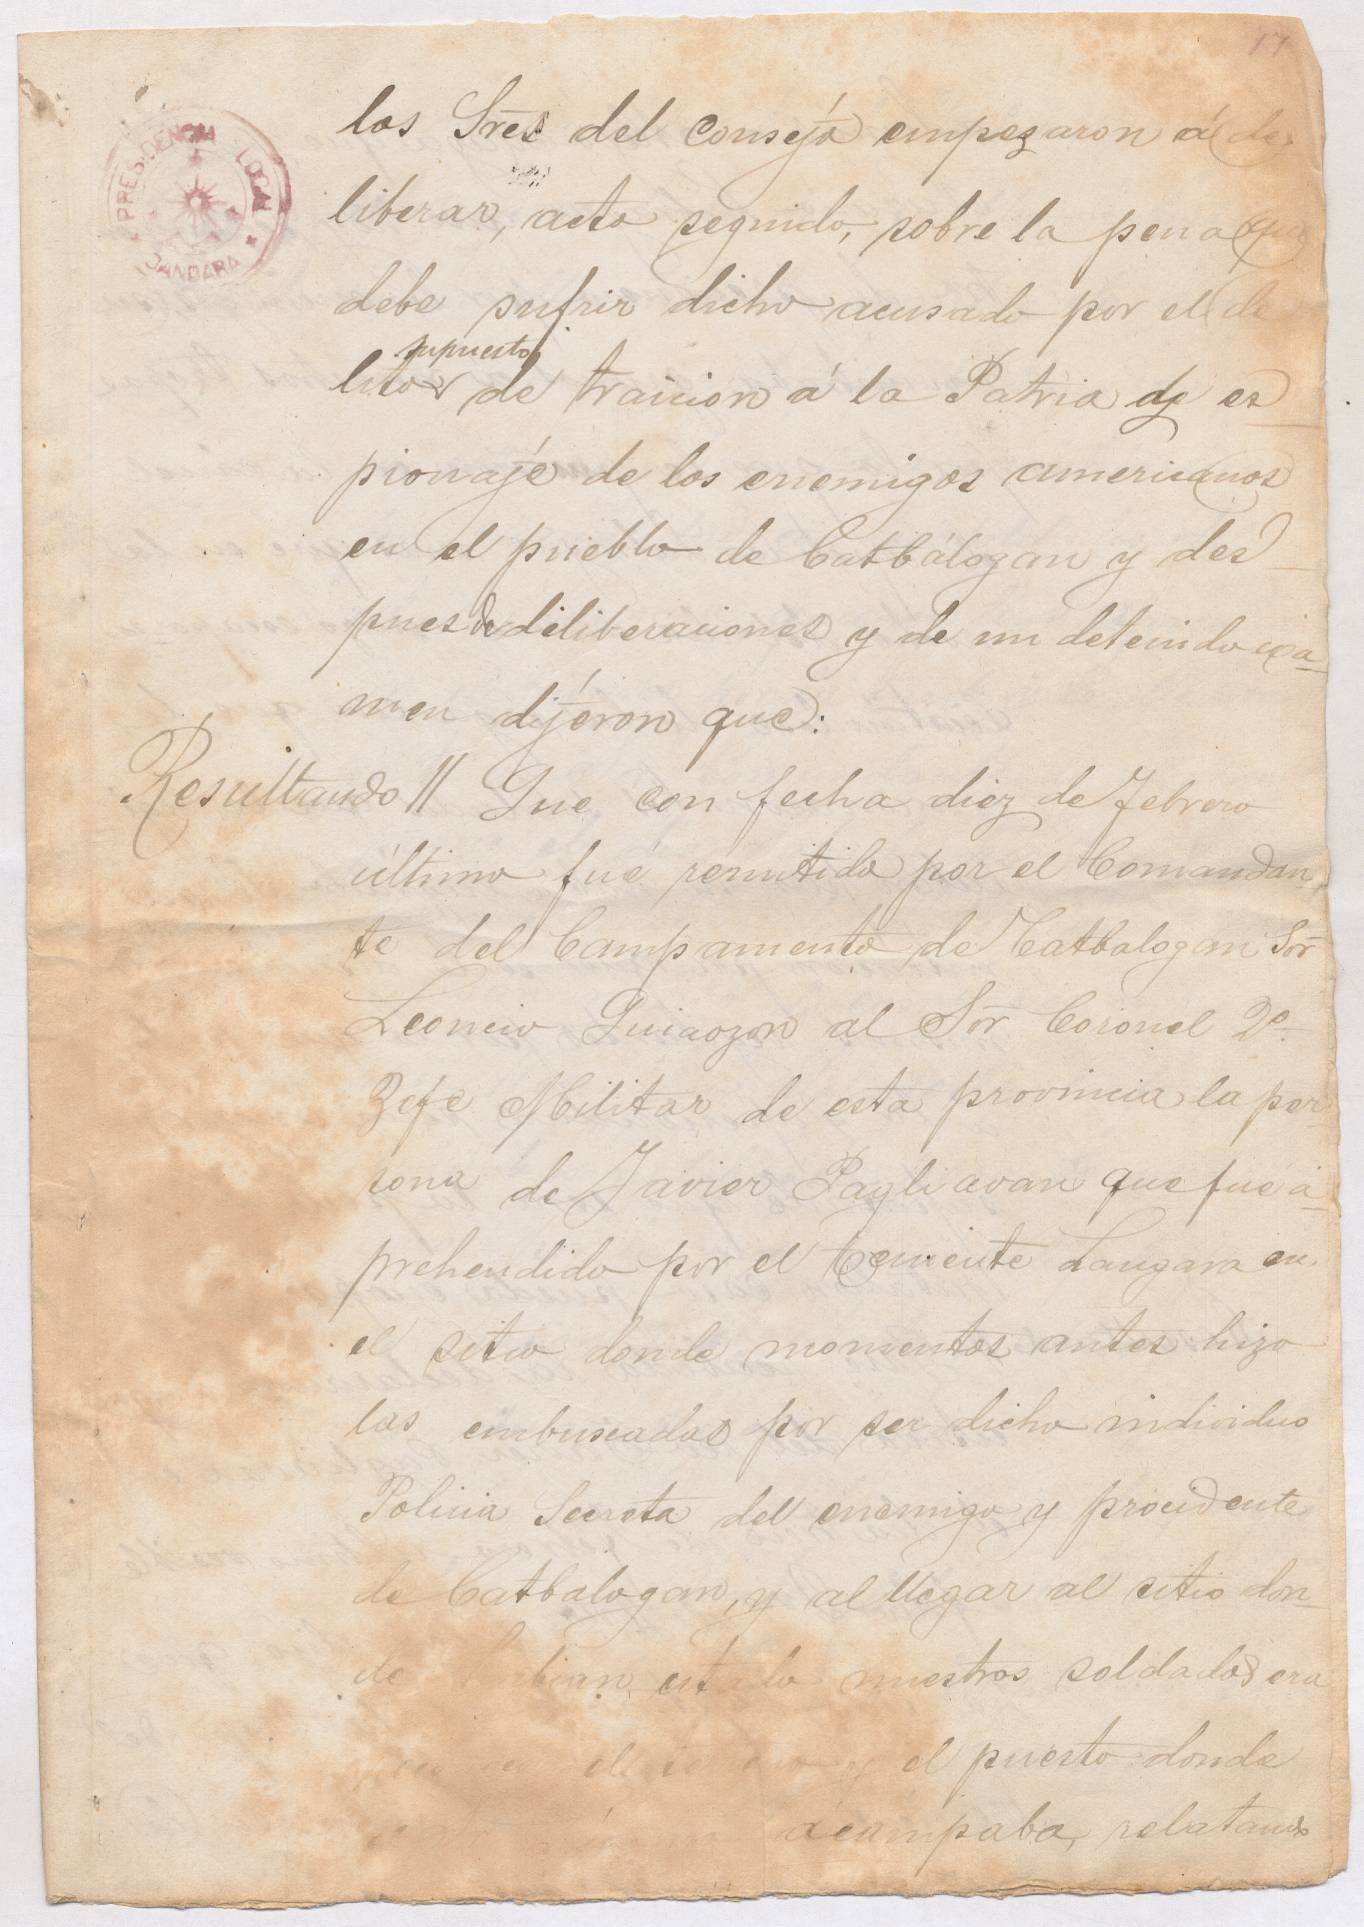 17
PRESIDENCIA LOCAL
GANDARA
los Sres del consejo empezaron á de
liberar, acto seguido, sobre la pena que
debe sufrir dicho acusado por el de
supuesto
lito de traicion á la Patria de es
pionaje de los enemigos americanos
en el pueblo de Catbálogan y des
pues de deliberaciones y de un detenido exa-
men dijéron que:
Resultando || Que con fecha diez de Febrero
último fué remitido por el Comandan-
te del Campamento de Catbalogan Sor
Leoncio Quiaozon al Sor Coronel 2º
Jefe Militar de esta provincia la per-
sona de Javier Pagliavan que fué a-
prehendido por el teniente Langara en
el sitio donde momentos antes hizo
las embuscadas por ser dicho individuo
Policia Secreta del enemigo y procedente
de Catbalogan, y al llegar al sitio don-
de habian estado nuestros soldados era
el y el puesto donde
acampaba, relatando